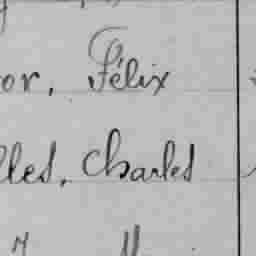 or, Félix
lles, Charles